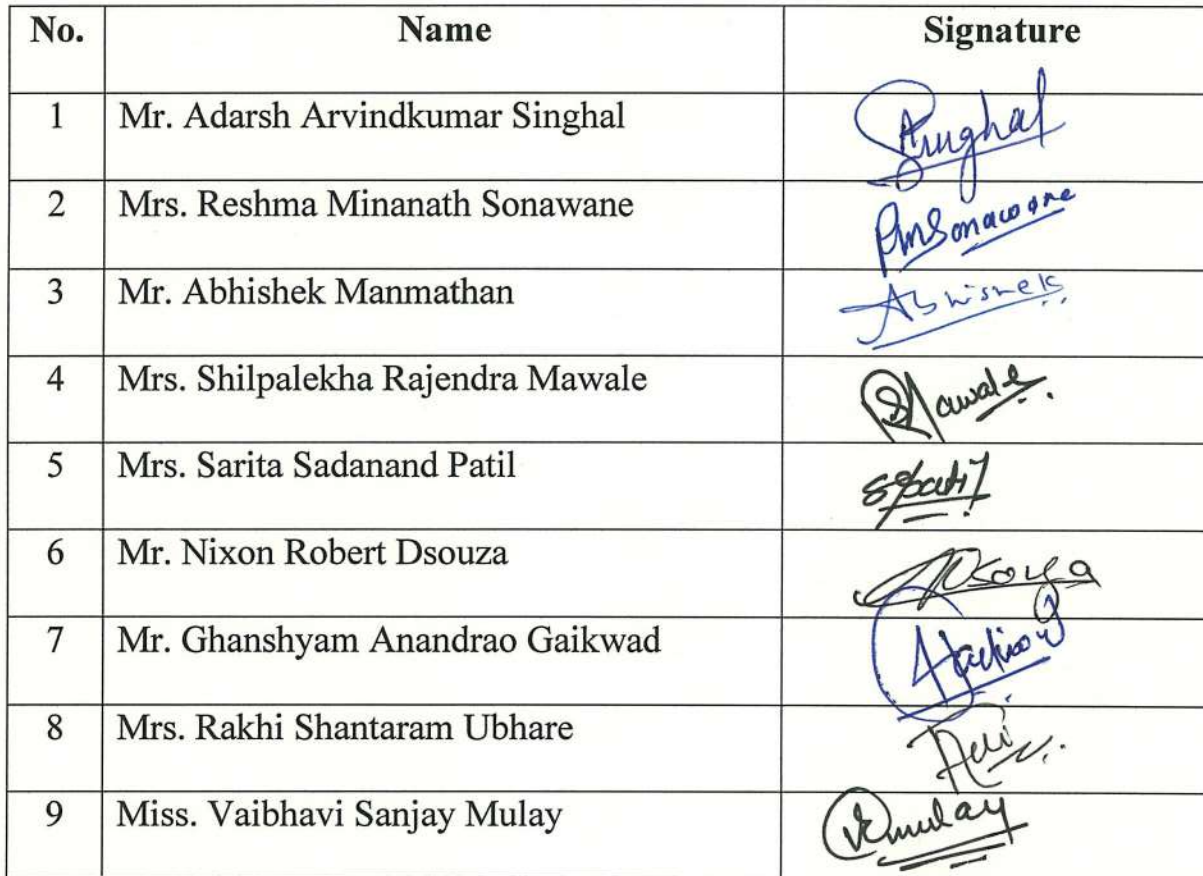 No. Name Signature
1 Mr. Adarsh Arvindkumar Singhal Singhal
2 Mrs. Reshma Minanath Sonawane RMSonawane
3 Mr. Abhishek Manmathan Abhishek
4 Mrs. Shilpalekha Rajendra Mawale Mawale
5 Mrs. Sarita Sadanand Patil SPatil
6 Mr. Nixon Robert Dsouza Dsouza
7 Mr. Ghanshyam Anandrao Gaikwad
8 Mrs. Rakhi Shantaram Ubhare
9 Miss. Vaibhavi Sanjay Mulay Mulay